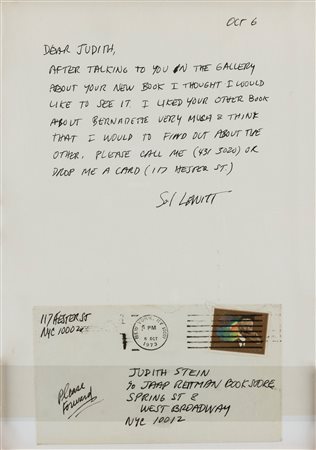 OCT 6
DEAR JUDITH,
AFTER TALKING TO YOU IN THE GALLERY
ABOUT YOUR NEW BOOK I THOUGHT I WOULD
LIKE TO SEE IT. I LIKED YOUR OTHER BOOK
ABOUT BERNADETTE VERY MUCH & THINK
THAT I WOULD TO FIND OUT ABOUT THE
OTHER. PLEASE CALL ME (431 5020) OR
DROP ME A CARD (117 HESTER ST.)
Sol LeWitt
117 HESTER ST
NYC 10002
NEW YORK, NY
PM
6 OCT
1973
JUDITH STEIN
c/o JAAP RIETMAN BOOKSTORE
SPRING ST &
WEST BROADWAY
NYC 10012
Please
Forward